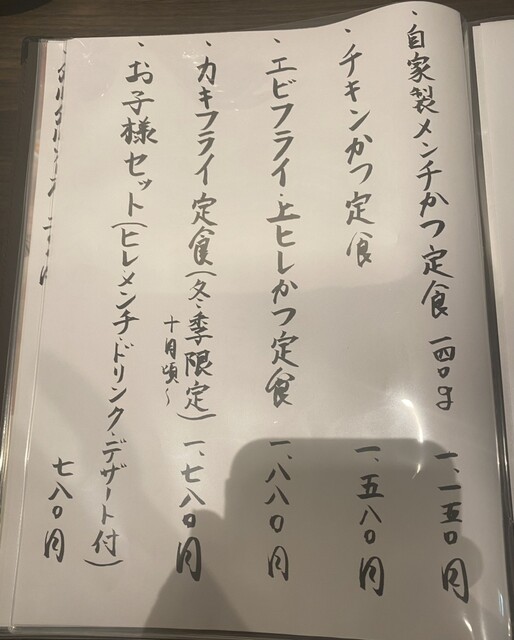 ・自家製メンチかつ定食 一四〇g 一、一五〇円
・チキンかつ定食 一、五八〇円
・エビフライ・上ヒレかつ定食 一、八八〇円
・カキフライ定食(冬季限定) 一、七八〇円
十月頃〜
・お子様セット(ヒレ・メンチ・ドリンク・デザート付)
七八〇円